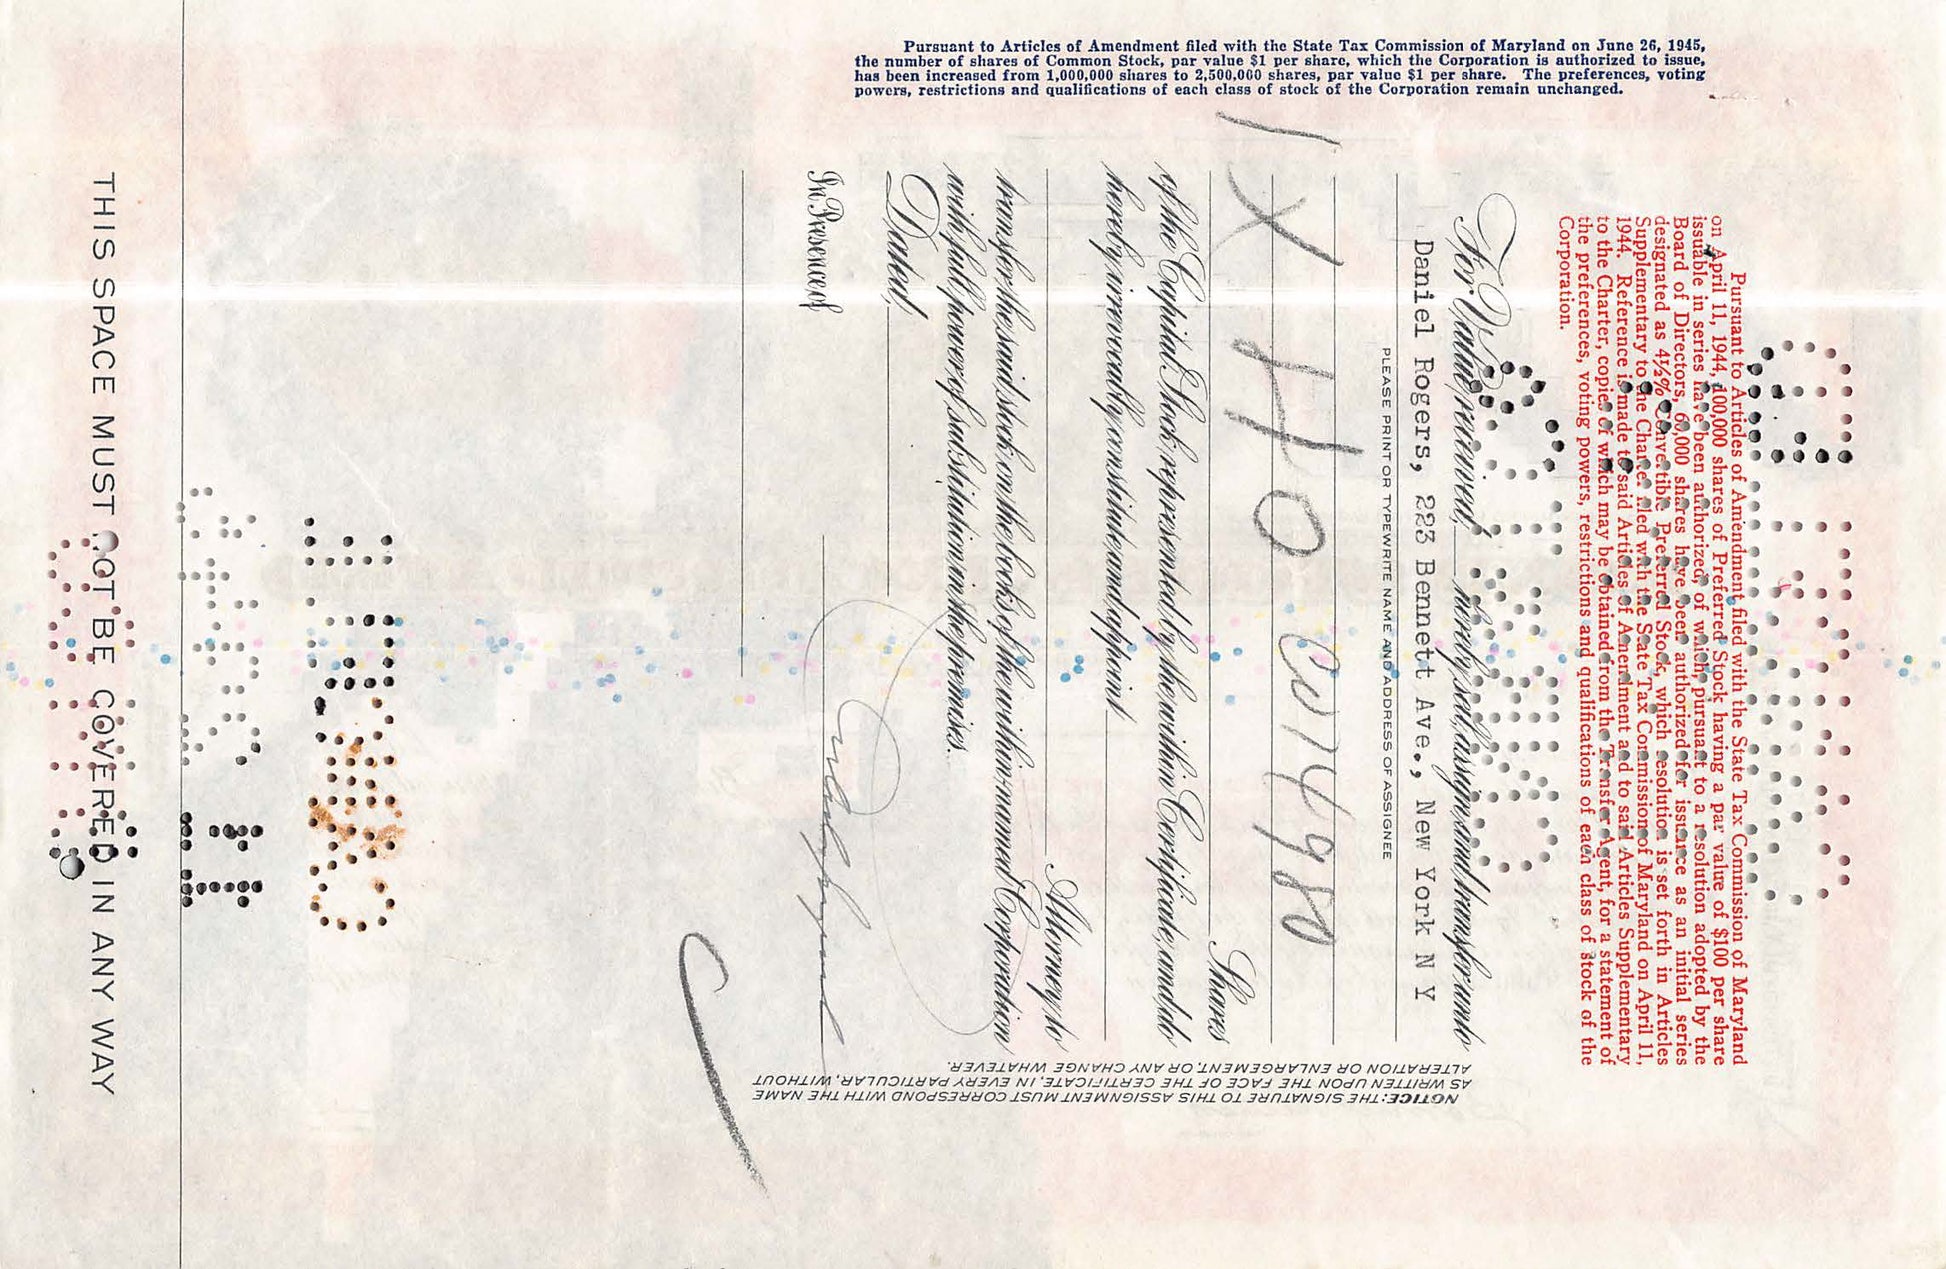 Pursuant to Articles of Amendment filed with the State Tax Commission of Maryland on June 26, 1945,
the number of shares of Common Stock, par value $1 per share, which the Corporation is authorized to issue,
has been increased from 1,000,000 shares to 2,500,000 shares, par value $1 per share. The preferences, voting
powers, restrictions and qualifications of each class of stock of the Corporation remain unchanged.
Pursuant to Articles of Amendment filed with the State Tax Commission of Maryland
on April 11, 1944, 100,000 shares of Preferred Stock having a par value of $100 per share
issuable in series have been authorized, of which, pursuant to a resolution adopted by the
Board of Directors, 60,000 shares have been authorized for issuance as an initial series
designated as 4½% Convertible Preferred Stock, which resolution is set forth in Articles
Supplementary to the Charter filed with the State Tax Commission of Maryland on April 11,
1944. Reference is made to said Articles of Amendment and to said Articles Supplementary
to the Charter, copies of which may be obtained from the Transfer Agent, for a statement of
the preferences, voting powers, restrictions and qualifications of each class of stock of the
Corporation.
For Value received, hereby sell, assign, and transfer unto
Daniel Rogers, 223 Bennett Ave., New York N Y
PLEASE PRINT OR TYPEWRITE NAME AND ADDRESS OF ASSIGNEE
Shares
of the Capital Stock represented by the within Certificate, and do
hereby irrevocably constitute and appoint
Attorney to
transfer the said stock on the books of the within-named Corporation
with full power of substitution in the premises.
Dated,
In Presence of
NOTICE: THE SIGNATURE TO THIS ASSIGNMENT MUST CORRESPOND WITH THE NAME
AS WRITTEN UPON THE FACE OF THE CERTIFICATE, IN EVERY PARTICULAR, WITHOUT
ALTERATION OR ENLARGEMENT, OR ANY CHANGE WHATEVER.
THIS SPACE MUST NOT BE COVERED IN ANY WAY